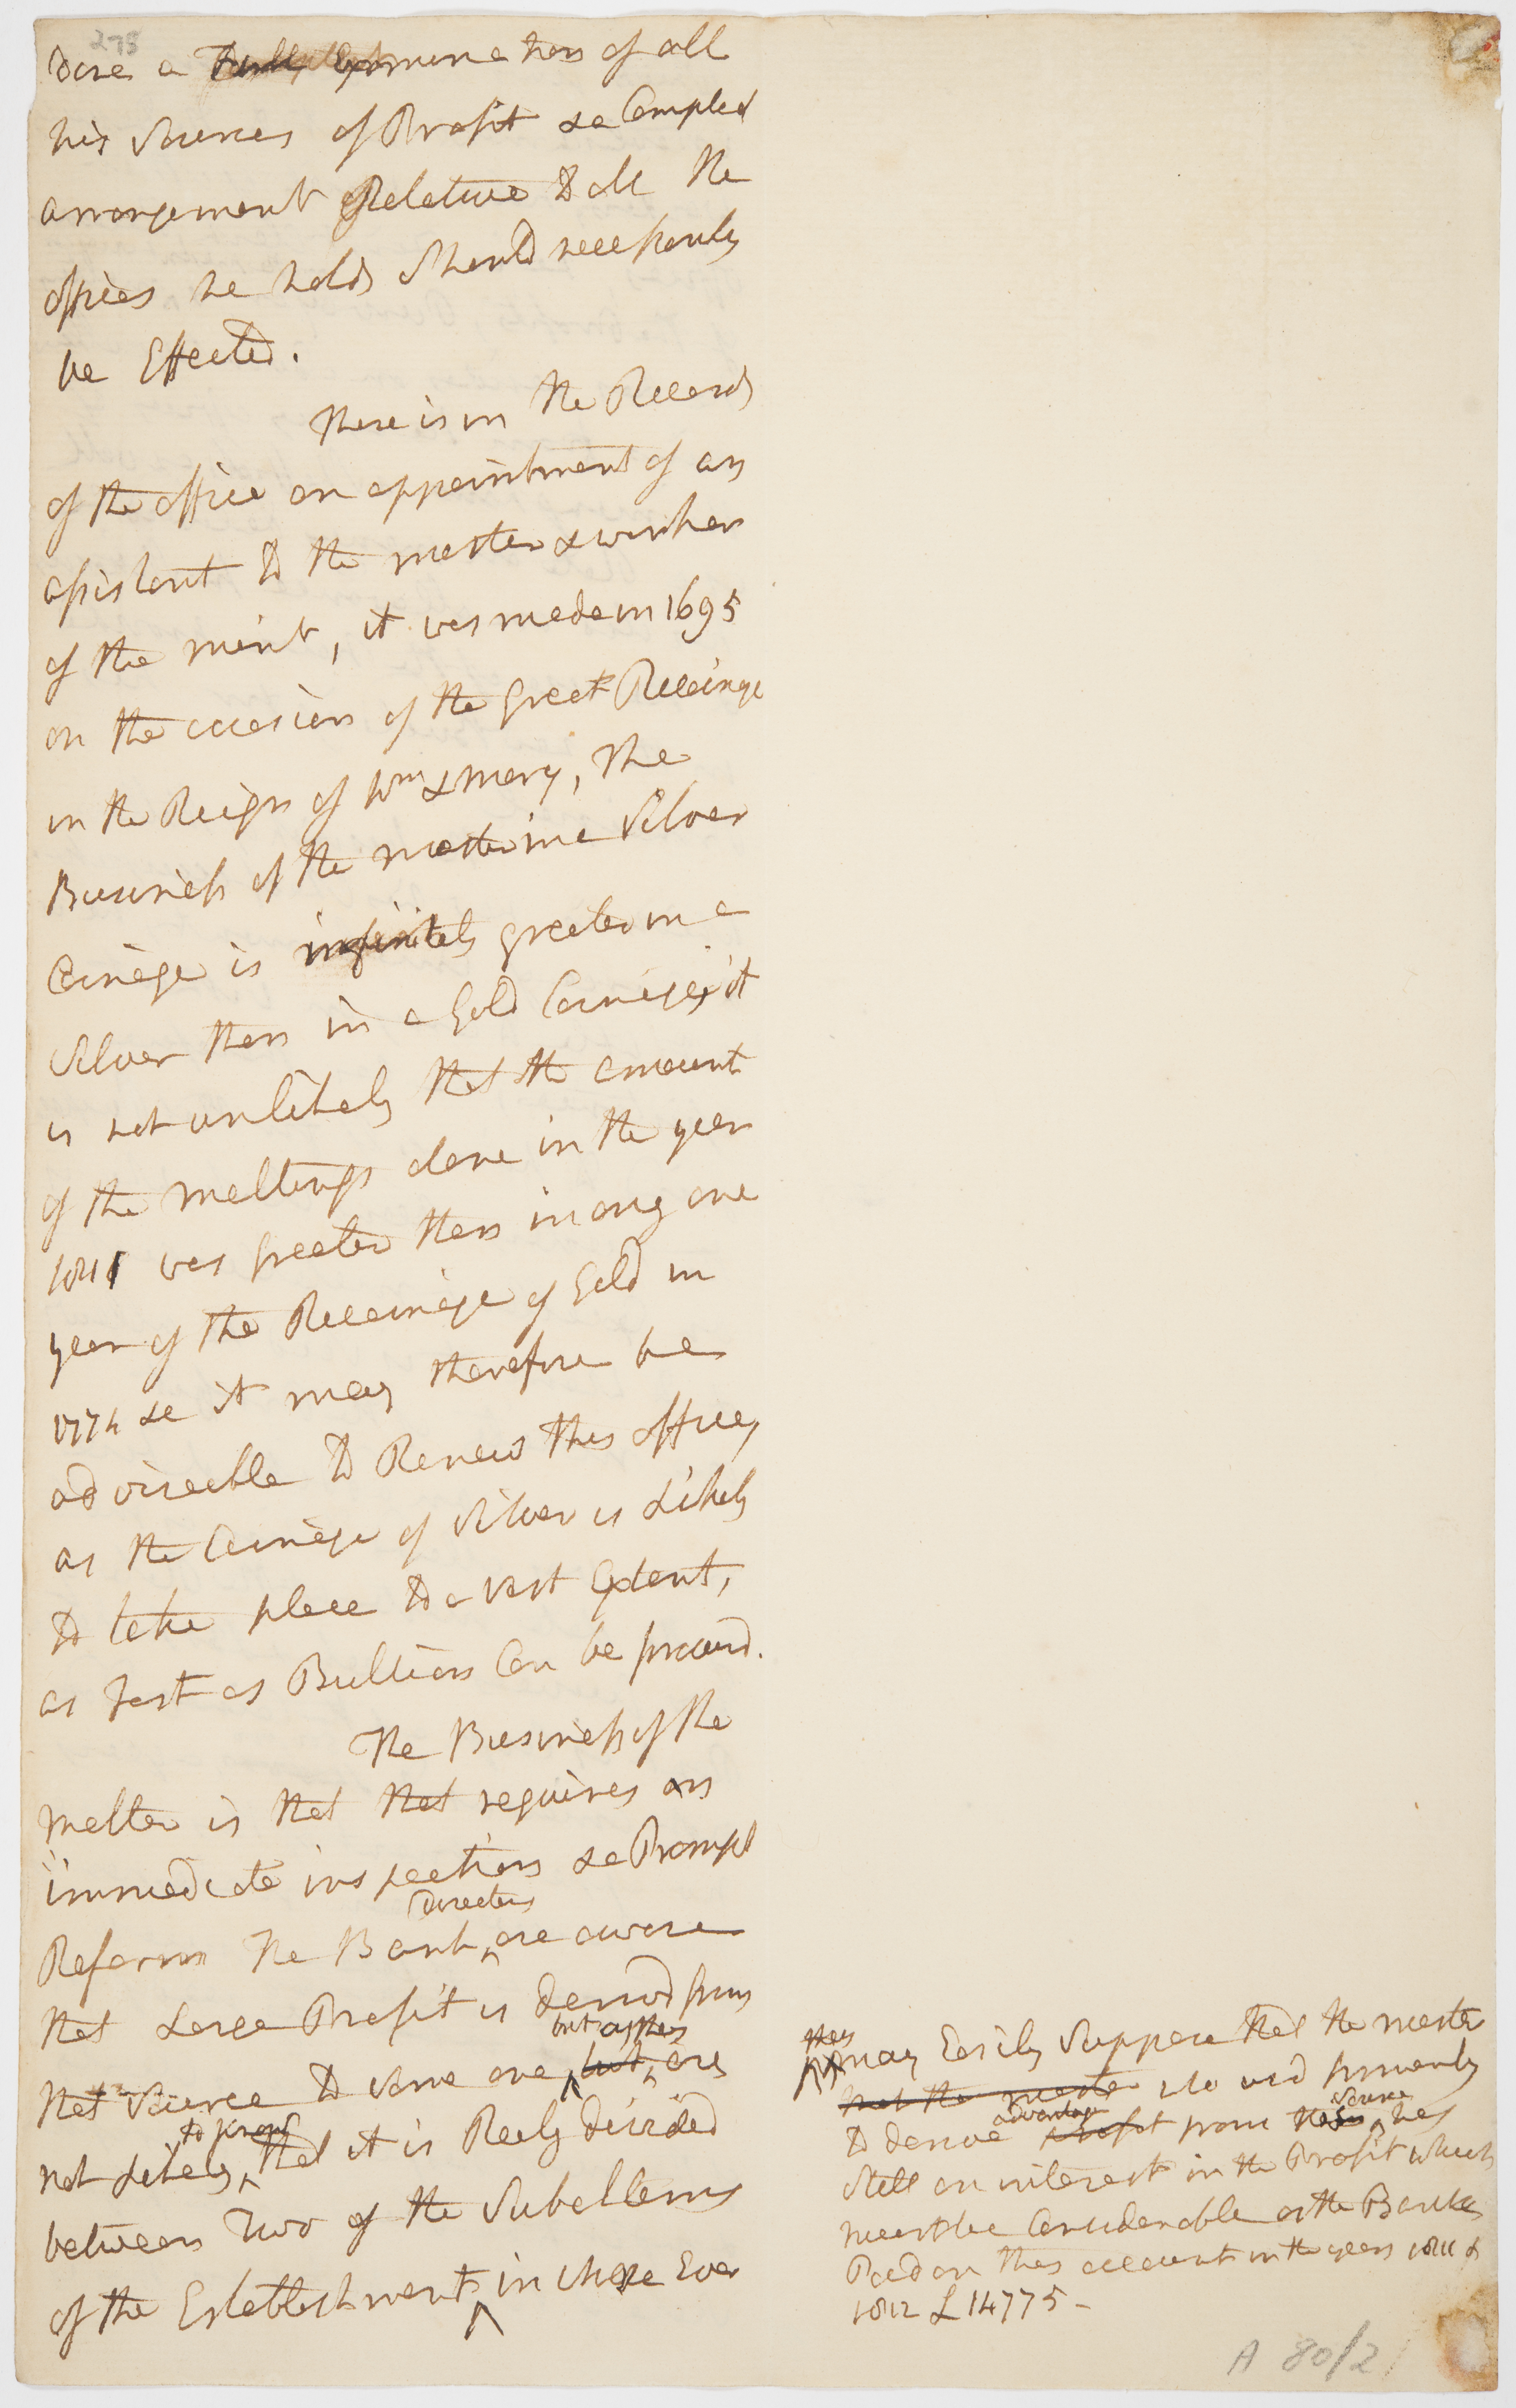 275
dore a Full Examination of all
his Sources of Profit & a Compleat
arrangement Relative to all the
offices he holds Should necessarily
be Effected.
There is in the Records
of the office an appointment of an
assistant to the master & worker
of the mint, it was made in 1695
on the occasion of the great Recoinage
in the Reign of Wm & Mary, The
Business of the master in a Silver
Coinage is infinitely greater in a
Silver than in a Gold Coinage, it
is not unlikely that the amount
of the meltings done in the year
1811 was greater than in any one
year of the Recoinage of Gold in
1774 &c it may therefore be
adviseable to Renew this office,
as the Coinage of Silver is Likely
to take place to a vast Extent,
as fast as Bullion Can be procurd.
The Business of the
melter is that that requires an
immediate inspection & a Prompt
Directors
Reform The Bank ^ are aware
that Large Profit is derivd from
but as they
that Source to some one ^ but ^ are
to know
not likely ^ that it is Realy divided
between Two of the Subalterns
of the Establishment ^ in whose Ever
they
may Easily Suppose that the master
that the master who usd formerly
advantage source
to derive profit from this ^ has
Still an interest in the Profit which
must be Considerable as the Bank
Paid on this account in the years 1811 &
1812 £14775 -
A 80/2